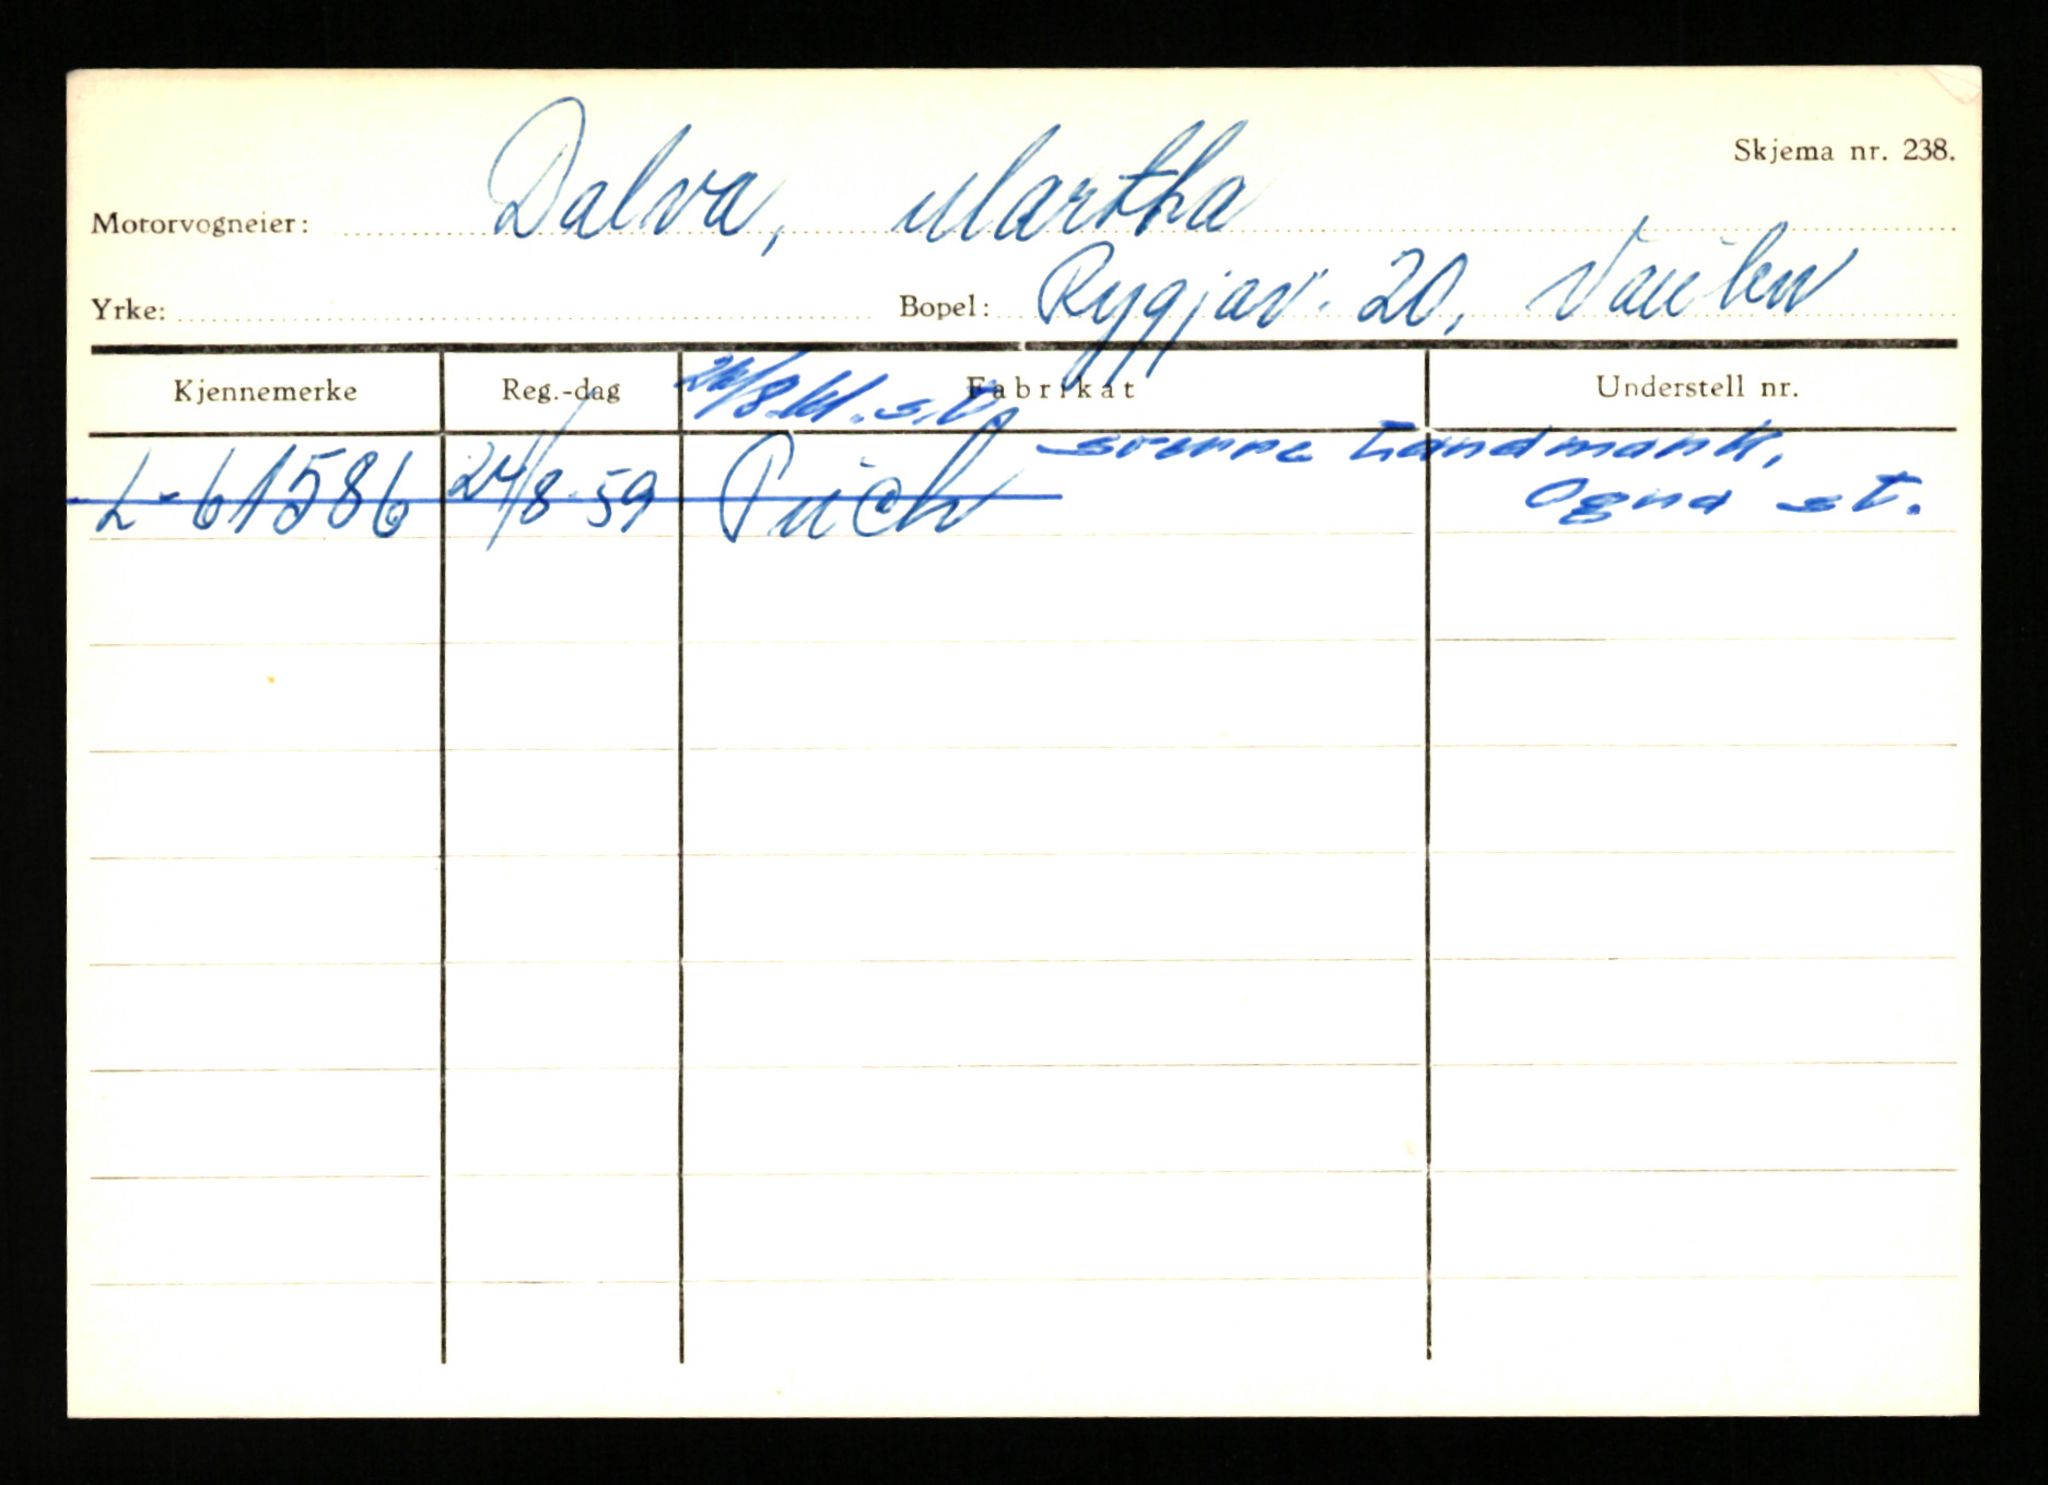 Skjema nr. 238.
Motorvogneier: Dalva, Martha
Yrke: Bopel: Rygjav. 20, Vaulen
Kjennemerke Reg.-dag Fabrikat Understell nr.
L-61586 24/8-59 Puch
Landmark,
Ogna st.